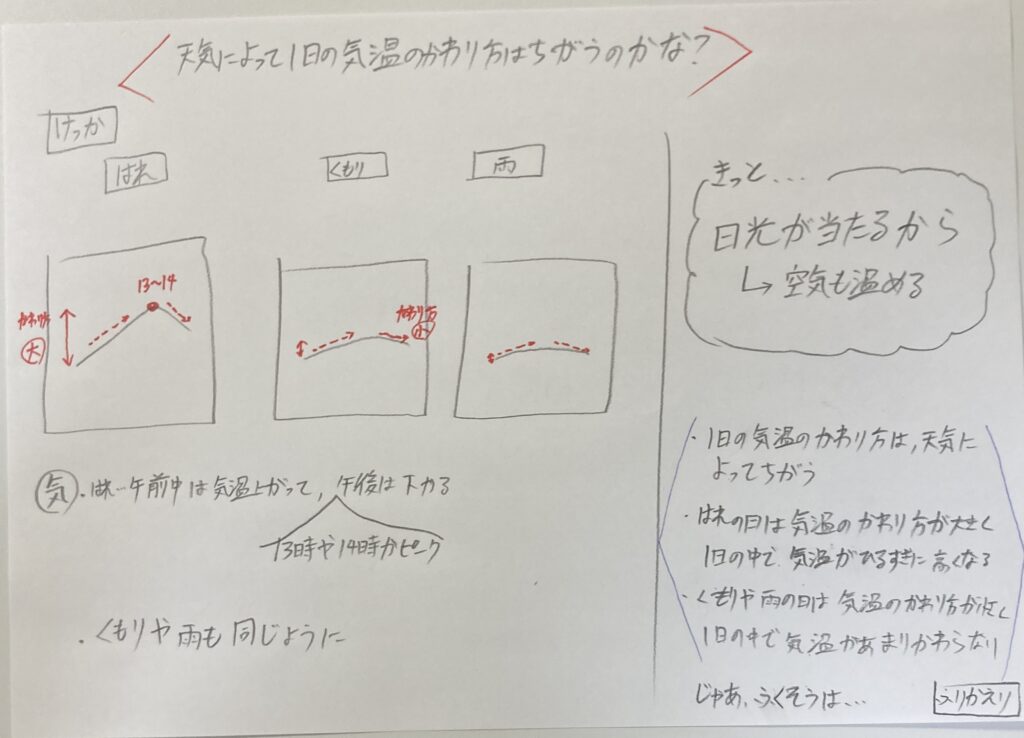 天気によって1日の気温のかわり方はちがうのかな？
けっか
はれ
くもり
雨
13〜14
かわり方
大
かわり方
小
気
・はれ…午前中は気温上がって，午後は下がる
13時や14時がピーク
・くもりや雨も同じように
きっと...
日光が当たるから
↳空気も温める
・1日の気温のかわり方は，天気に
よってちがう
・はれの日は気温のかわり方が大きく
1日の中で気温がひるすぎに高くなる
・くもりや雨の日は気温のかわり方が小さく
1日の中で気温があまりかわらない
じゃあ，ふくそうは...
ふりかえり